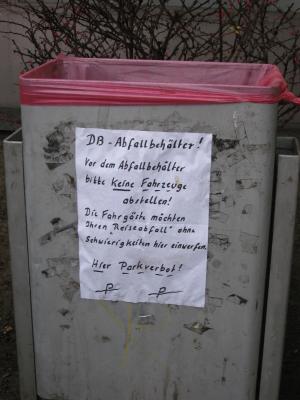 DB - Abfallbehälter!
Vor dem Abfallbehälter
bitte Keine Fahrzeuge
abstellen!
Die Fahrgäste möchten
Ihren "Reiseabfall" ohne
Schwierigkeiten hier einwerfen.
Hier Parkverbot!
P P